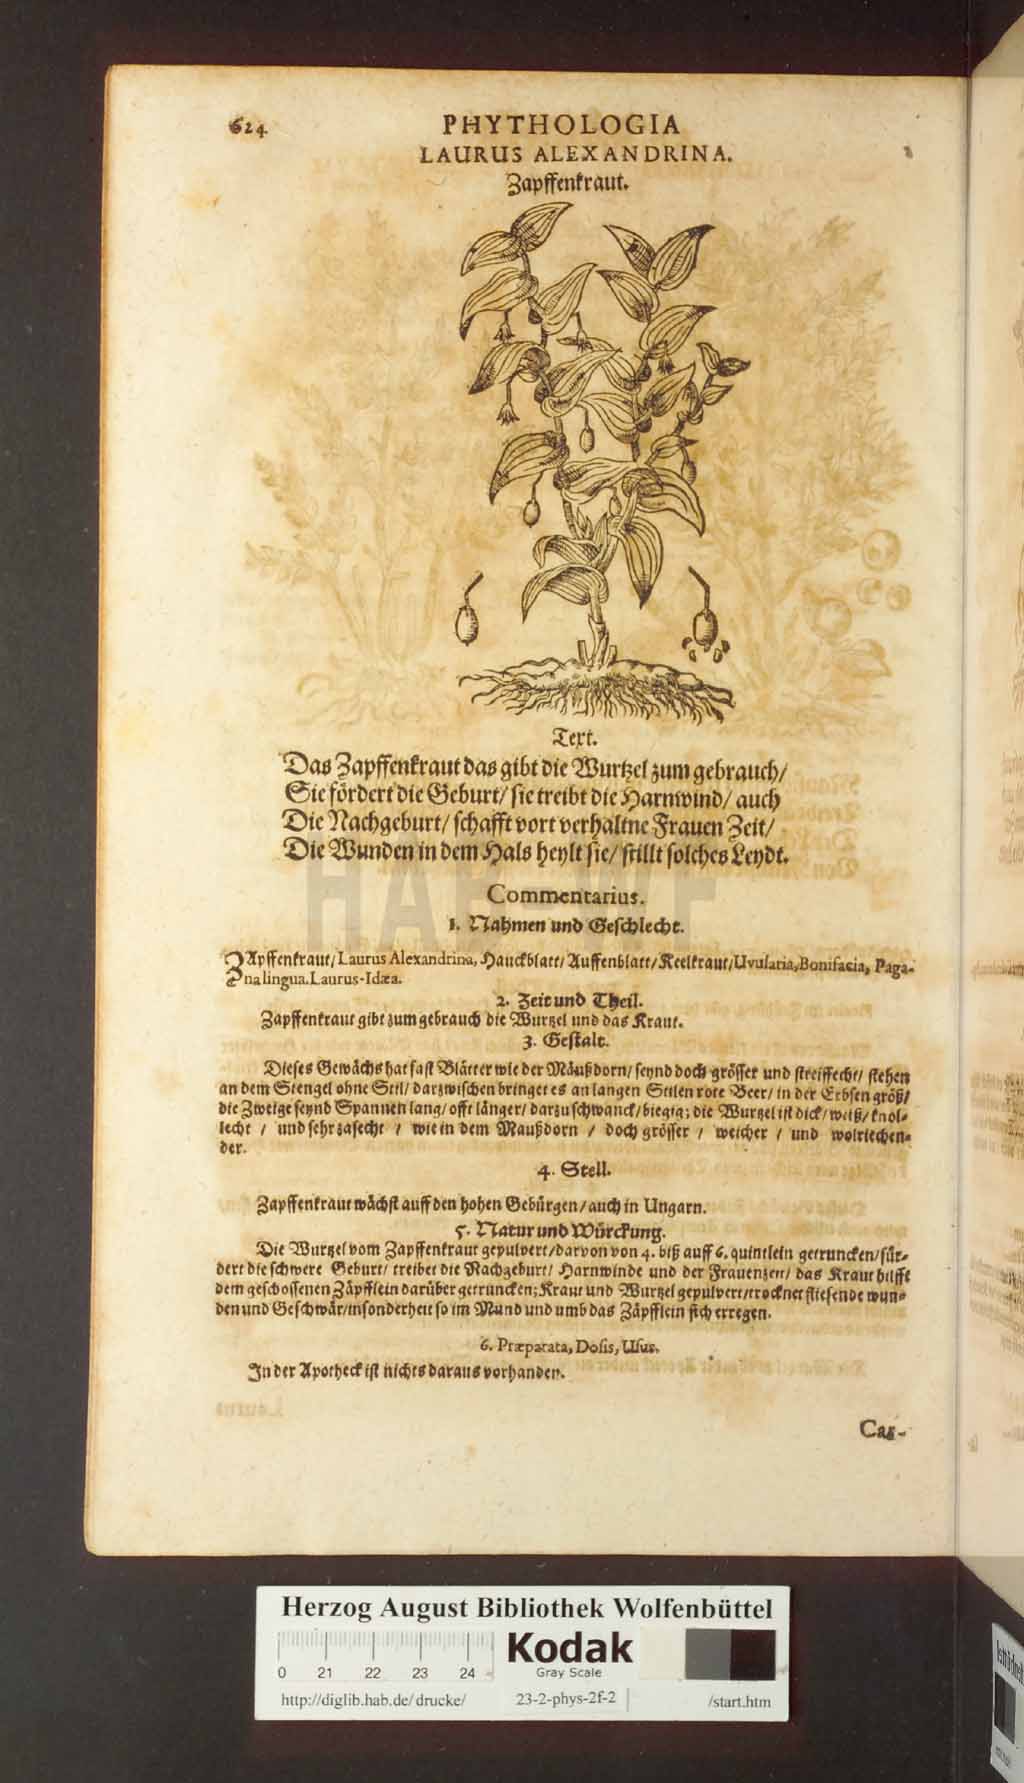 624
PHYTHOLOGIA
LAURUS ALEXANDRINA.
Zapffenkraut.
Text.
Das Zapffenkraut das gibt die Wurtzel zum gebrauch/
Sie fördert die Geburt/ sie treibt die Harnwind/ auch
Die Nachgeburt/ schafft vort verhaltne Frauen Zeit/
Die Wunden in dem Hals heylt sie/ stillt solches Leydt.
Commentarius.
1. Nahmen und Geschlecht.
ZApffenkraut/ Laurus Alexandrina, Hauckblatt/ Auffenblatt/ Keelkraut/ Uvularia, Bonifacia, Paga-
na lingua. Laurus-Idæa.
2. Zeit und Theil.
Zapffenkraut gibt zum gebrauch die Wurtzel und das Kraut.
3. Gestalt.
Dieses Gewächs hat fast Blätter wie der Mäußdorn/ seynd doch grösser und streiffecht/ stehen
an dem Stengel ohne Stil/ darzwischen bringet es an langen Stilen rote Beer/ in der Erbsen größ/
die Zweige seynd Spannen lang/ offt länger/ darzu schwanck/ biegig; die Wurtzel ist dick/ weiß/ knol-
lecht / und sehr zasecht / wie in dem Maußdorn / doch grösser / weicher / und wolriechen-
der.
4. Stell.
Zapffenkraut wächst auff den hohen Gebürgen/ auch in Ungarn.
5. Natur und Würckung.
Die Wurtzel vom Zapffenkraut gepulvert/ darvon von 4. biß auff 6. quintlein getruncken/ für-
dert die schwere Geburt/ treibet die Nachgeburt/ Harnwinde und der Frauenzeit/ das Kraut hilfft
dem geschossenen Zäpfflein darüber getruncken; Kraut und Wurtzel gepulvert/ trocknet fliesende wun-
den und Geschwär/ insonderheit so im Mund und umb das Zäpfflein sich erregen.
6. Præparata, Dosis, Usus.
In der Apotheck ist nichts daraus vorhanden.
Car-
HAB WF
Herzog August Bibliothek Wolfenbüttel
Kodak
Gray Scale
0 21 22 23 24
http://diglib.hab.de/drucke/ 23-2-phys-2f-2 /start.htm